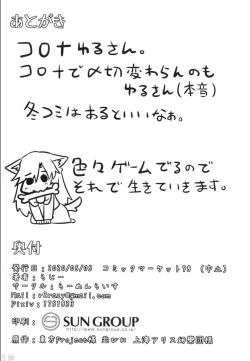 あとがき
コロナゆるさん。
コロナで〆切変わらんのも
ゆるさん(本音)
冬コミはあるといいなぁ。
色々ゲームでるので
それで生きていきます。
奥付
発行日:2020/05/05 コミックマーケット98 (中止)
著者:らどー
サークル:らーめんらいす
Pixiv:1751823
印刷:
SUN GROUP
原案:東方Project様 並びに 上海アリス幻樂団様